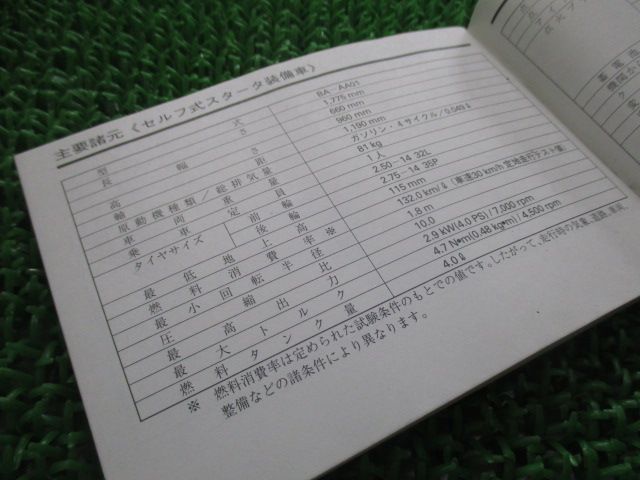 主要諸元〈セルフ式スタータ装備車〉
型式 BA-AA01
長さ 1,775 mm
幅 660 mm
高さ 960 mm
軸距 1,190 mm
原動機種類／総排気量 ガソリン・4サイクル/0.049ℓ
車両重量 81 kg
乗車定員 1人
タイヤサイズ 前輪 2.50-14 32L
後輪 2.75-14 35P
最低地上高 115 mm
燃料消費率※ 132.0 km/ℓ (車速30 km/h 定地走行テスト値)
最小回転半径 1.8 m
圧縮比 10.0
最高出力 2.9 kW(4.0 PS)/7,000 rpm
最大トルク 4.7 N•m(0.48 kg•m)/4,500 rpm
燃料タンク量 4.0 ℓ
※ 燃料消費率は定められた試験条件のもとでの値です。したがって、走行時の気象、道路、車両、
整備などの諸条件により異なります。